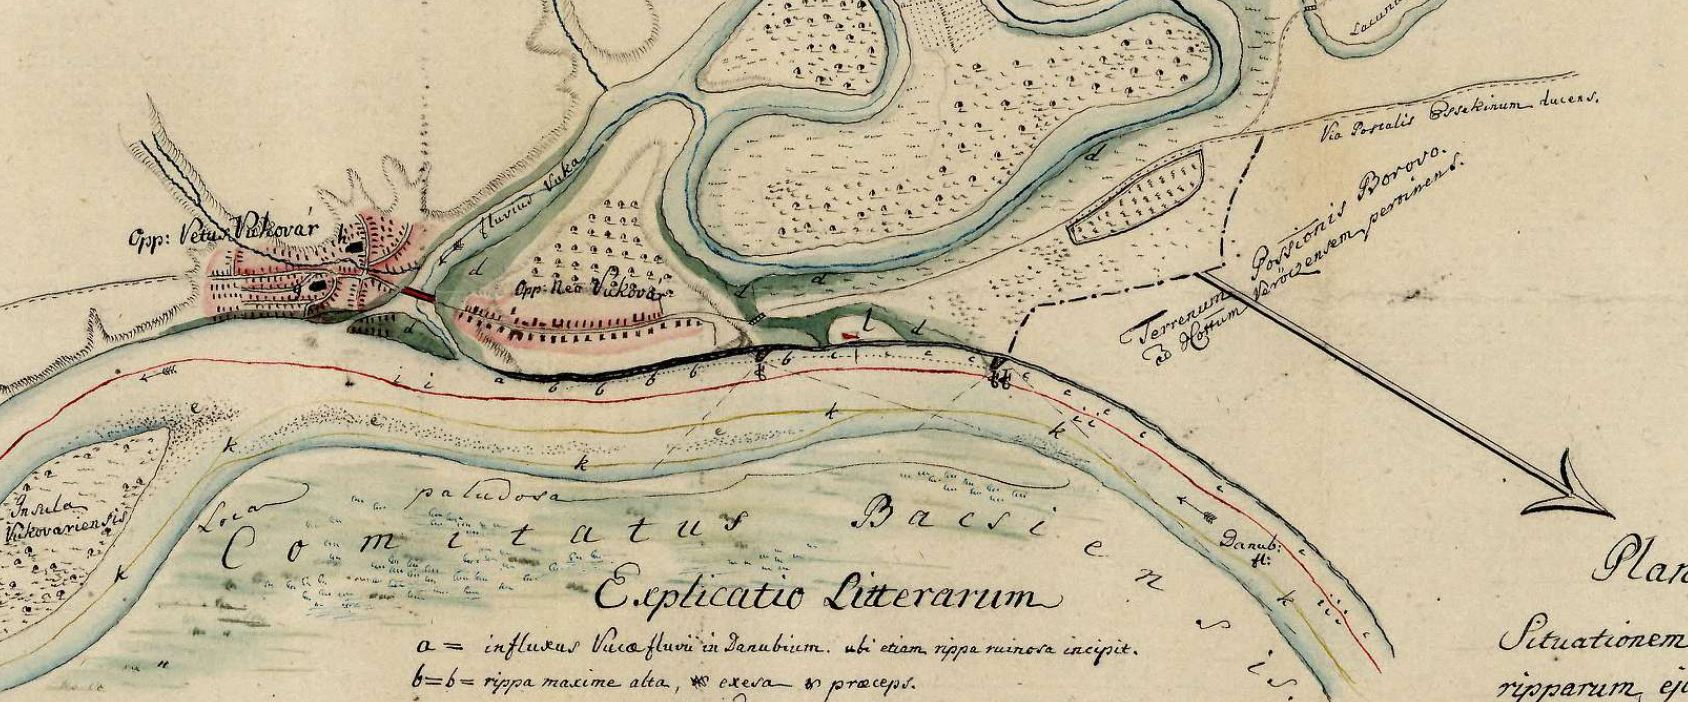 Lacuna
Via Postalis Essekinum ducens.
Possionis Borovo.
Terrenum
ad Veröczensem pertinens.
Opp: Vetus Vukovár
h
g
fluvius Vuka
d
d
d
d
d
d
Opp: Neo Vukovár
l
a b b b b b c c c c c
i i
i i
i i i
e
e
e
k
k
k
k
k
k
Insula
Vukovariensis
Loca paludosa
Comitatus Bacsiensis.
Danub:
fl:
Explicatio Litterarum
a = influxus Vucæ fluvii in Danubium. ubi etiam rippa ruinosa incipit.
b=b= rippa maxime alta, exesa & præceps.
Plan
Situationem
ripparum, ej